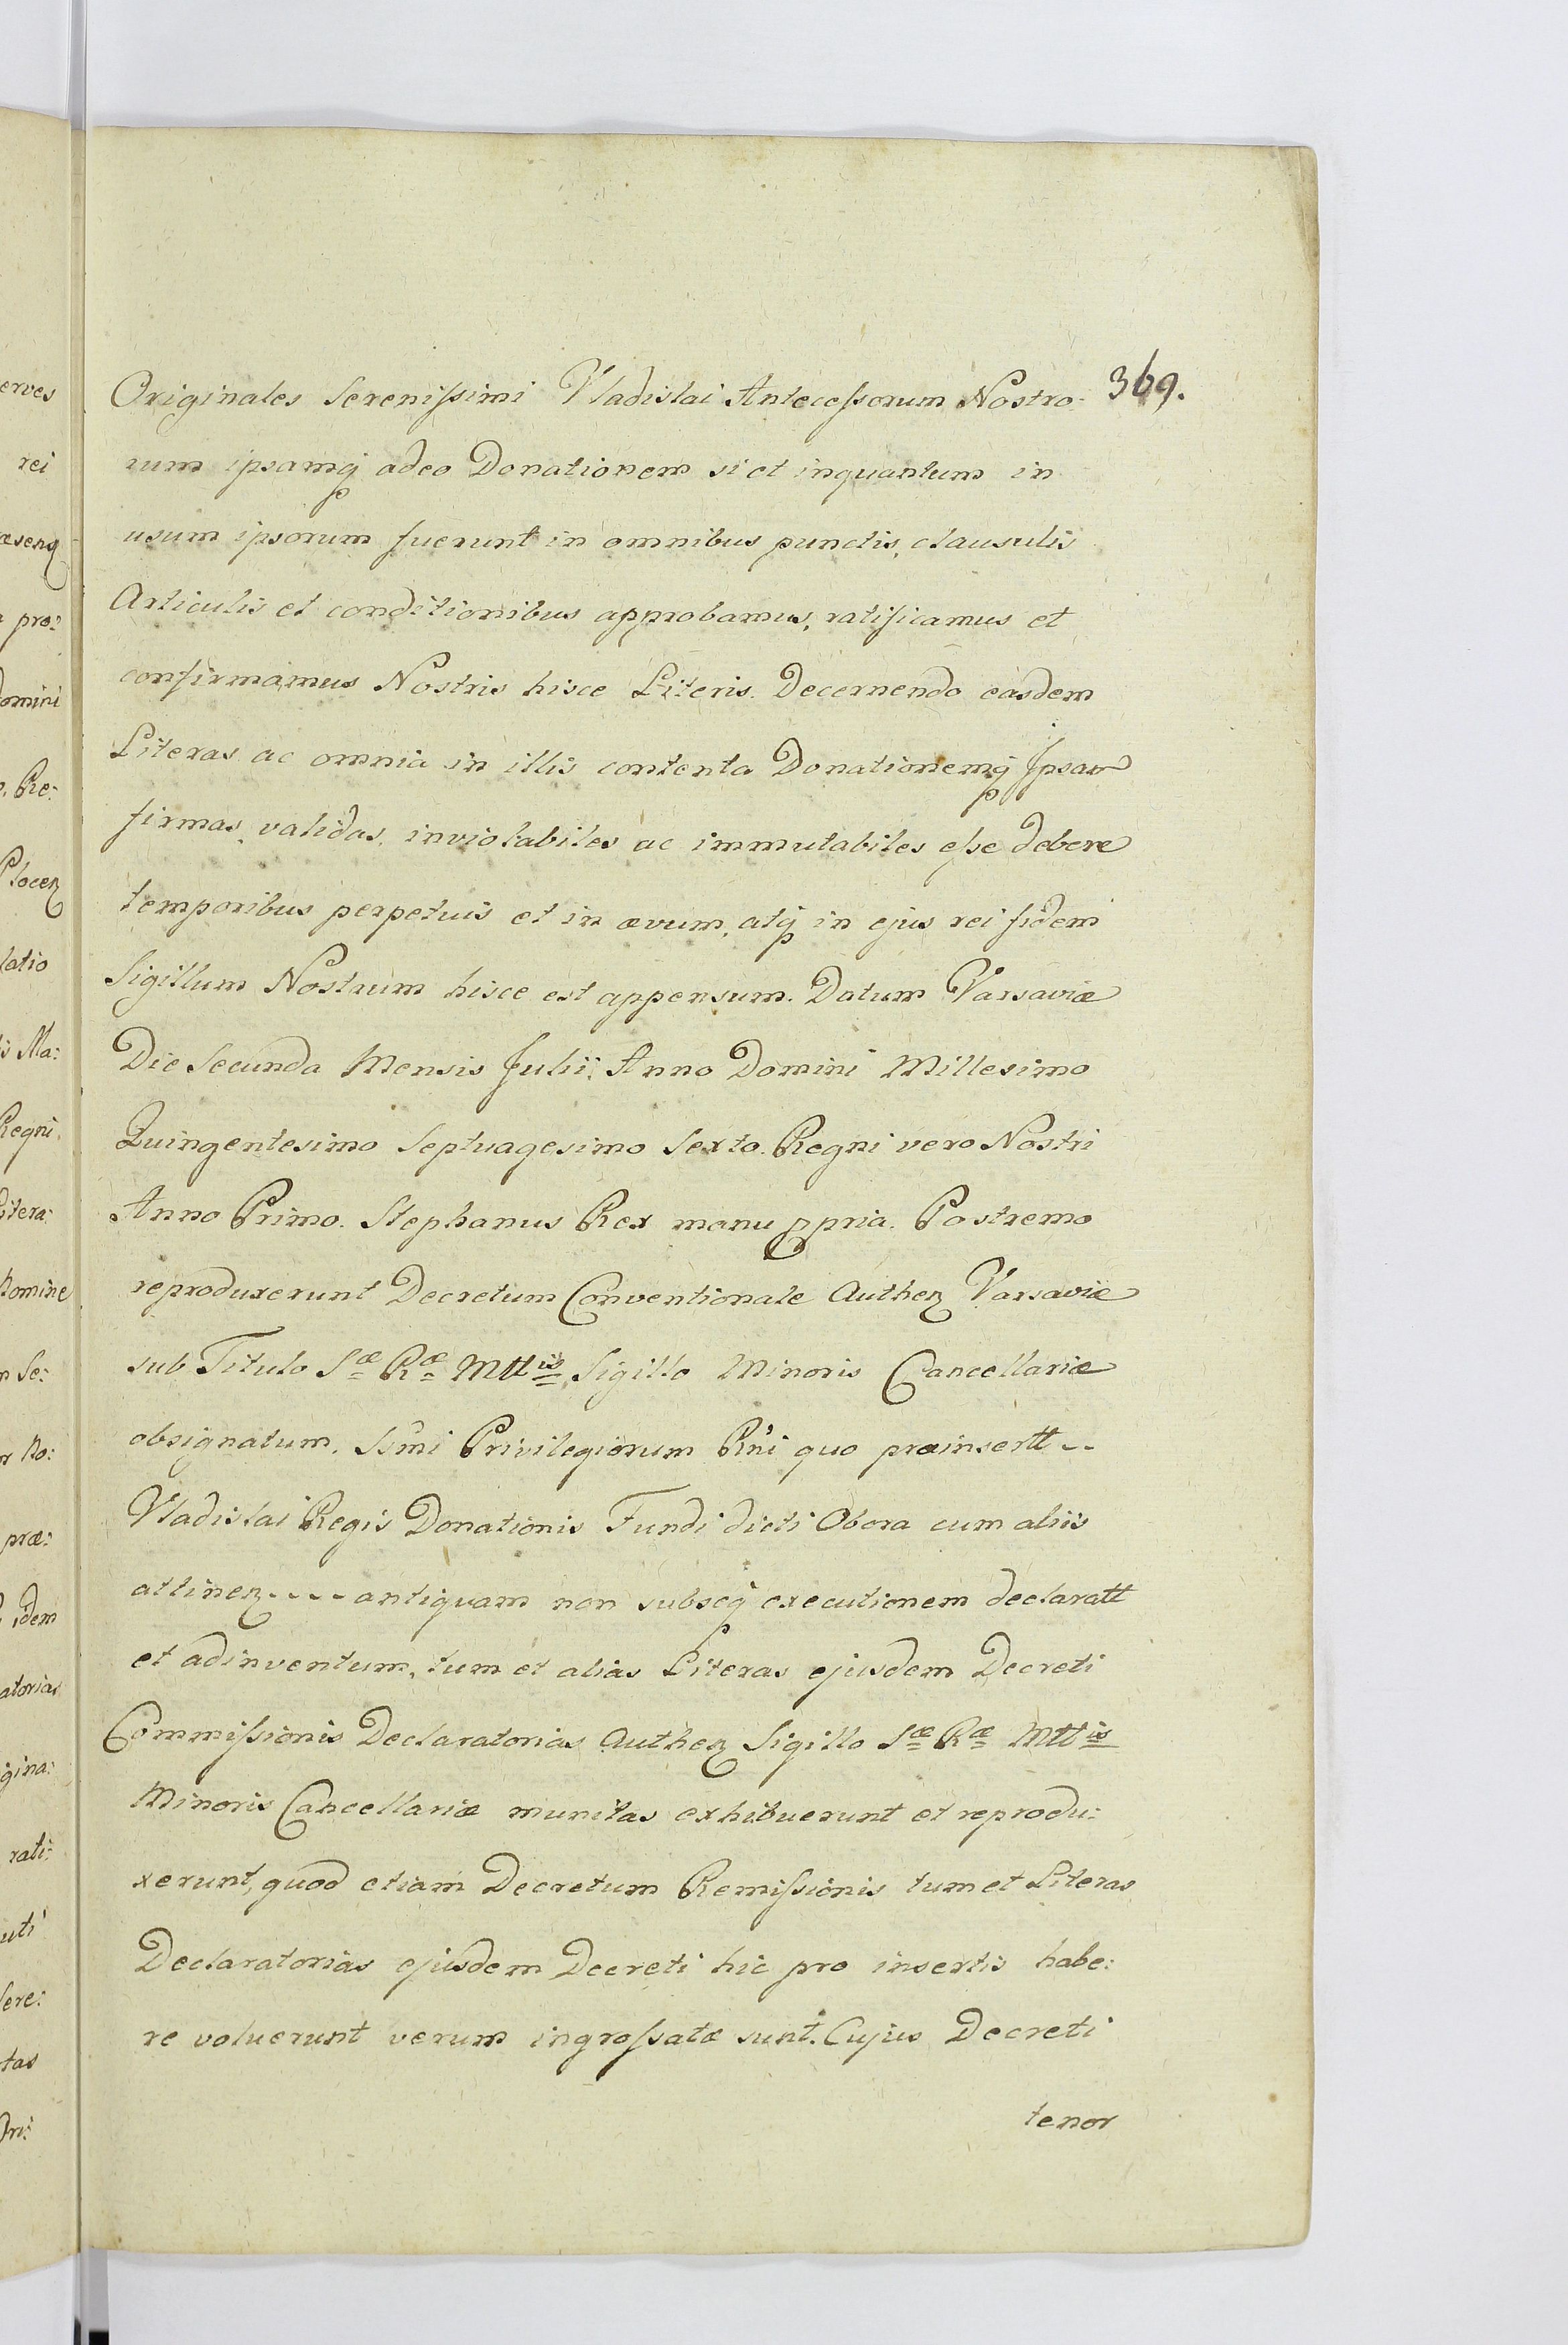 369.
Originales Serenissimi Vladislai Antecessorum Nostro-
rum ipsamq adeo Donationem si et inquantum in
usum ipsorum fuerunt in omnibus punctis, clausulis
Articulis et conditionibus approbamus, ratificamus et
confirmamus Nostris hisce Literis. Decernendo easdem
Literas ac omnia in illis contenta Donationemq Ipsam
firmas, validas, inviolabiles ac immutabiles esse debere
temporibus perpetuis et in ævum, atq in ejus rei fidem
Sigillum Nostrum hisce est appensum. Datum Varsaviæ
Die Secunda Mensis Julii, Anno Domini Millesimo
Quingentesimo Septuagesimo Sexto. Regni vero Nostri
Anno Primo. Stephanus Rex manu ppria. Postremo
reproduxerunt Decretum Conventionale Authen Varsaviæ
sub Titulo Sæ Ræ Mttis, Sigillo Minoris Cancellariæ
obsignatum, Ssmi Privilegiorum Rni quo præinsertt --
Vladislai Regis Donationis Fundi dicti Obora cum aliis
attinen---- antiquam non subseq executionem declaratt
et adinventum, tum et alias Literas ejusdem Decreti
Commissionis Declaratorias Authen Sigillo Sæ Ræ Mttis
Minoris Cancellariæ munitas exhibuerunt et reprodu:
xerunt, quod etiam Decretum Remissionis tum et Literas
Declaratorias ejusdem Decreti hic pro insertis habe:
re voluerunt verum ingrossatæ sunt. Cujus Decreti
tenor
erves
rei
æsen
pro:
omini
Re:
Plocen
latio
Ma:
Regni
itera:
Nomine
Se:
No:
præ:
idem
atorias
gina:
rati:
uti
ere:
tas